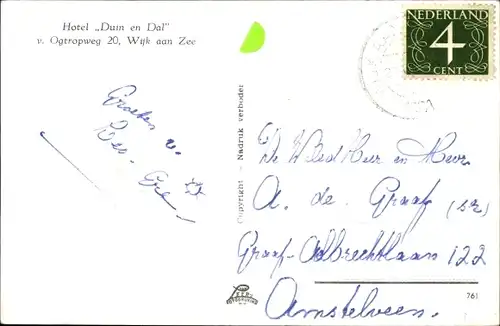 Hotel „Duin en Dal"
v. Ogtropweg 20, Wijk aan Zee
NEDERLAND
4
CENT
Groeten v.
Copyright - Nadruk verboden
De WelEd Heer en Mevr.
A. de Graaf (sr)
Graaf-Adlbrechtlaan 122
Amstelveen.
761